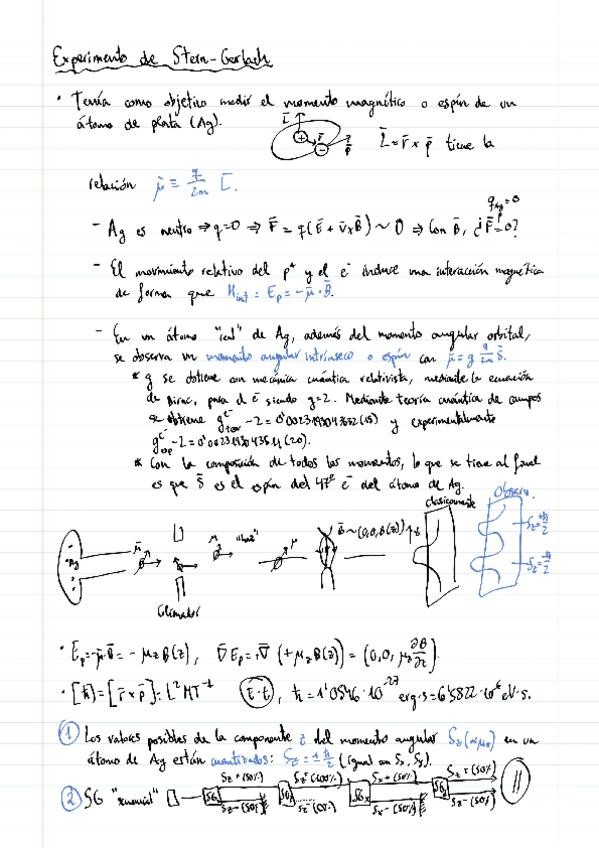 Experimento de Stern-Gerlach
• Tenía como objetivo medir el momento magnético o espín de un
átomo de plata (Ag). L̄ r̄ p̄ L̄ = r̄ x p̄ tiene la
relación μ̄ ≡ q/2m L̄.
- Ag es neutro ⇒ q=0 ⇒ F̄ = q(Ē + v̄xB̄) ~ 0 ⇒ Con B̄, ¿F̄ = 0?
- El movimiento relativo del p⁺ y el e⁻ induce una interacción magnética
de forma que H_int = E_p = -μ̄·B̄.
- En un átomo "real" de Ag, además del momento angular orbital,
se observa un momento angular intrínseco o espín con μ̄ = g q/2m S̄.
* g se obtiene con mecánica cuántica relativista, mediante la ecuación
de Dirac, para el e⁻ siendo g=2. Mediante teoría cuántica de campos
se obtiene y experimentalmente
* Con la composición de todos los momentos, lo que se tiene al final
es que S̄ es el espín del 47º e⁻ del átomo de Ag.
clásicamente
Observo.
Ag μ̄ μ̄ B̄~(0,0,B(z))
Colimador
• E_p=-μ̄·B̄ = -μ_z B(z), ∇̄E_p = ∇̄(+μ_z B(z)) = (0,0,μ_z ∂B/∂z).
• [ħ] = [r̄xp̄] = L²MT⁻¹ (E·t), ħ = 1'0546·10⁻²⁷ erg·s = 6'5822·10⁻⁶ eV·s.
① Los valores posibles de la componente z del momento angular S_z (∝μ_z) en un
átomo de Ag están cuantizados: S_z = ± ħ/2 (igual con S_x, S_y).
② SG "secuencial" SG_z S_z+(50%) S_z-(50%) SG_z S_z+(100%) S_z-(0%) SG_x S_x+(50%) S_x-(50%) SG_z S_z+(50%) S_z-(50%)